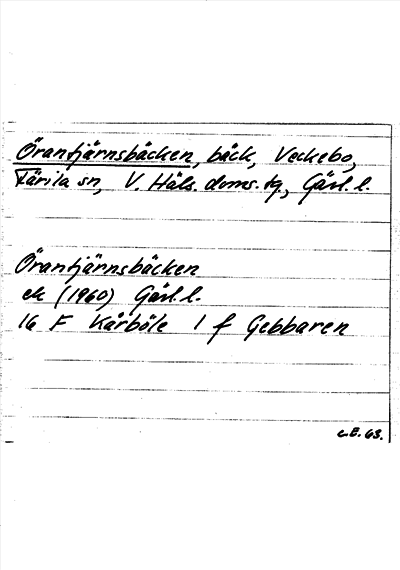 Örantjärnsbäcken, bäck, Veckebo,
Färila sn, V. Häls. doms. tg., Gävl. l.
Örantjärnsbäcken
ek (1960) Gävl. l.
16 F Kårböle 1 f Gebbaren
L.E. 63.